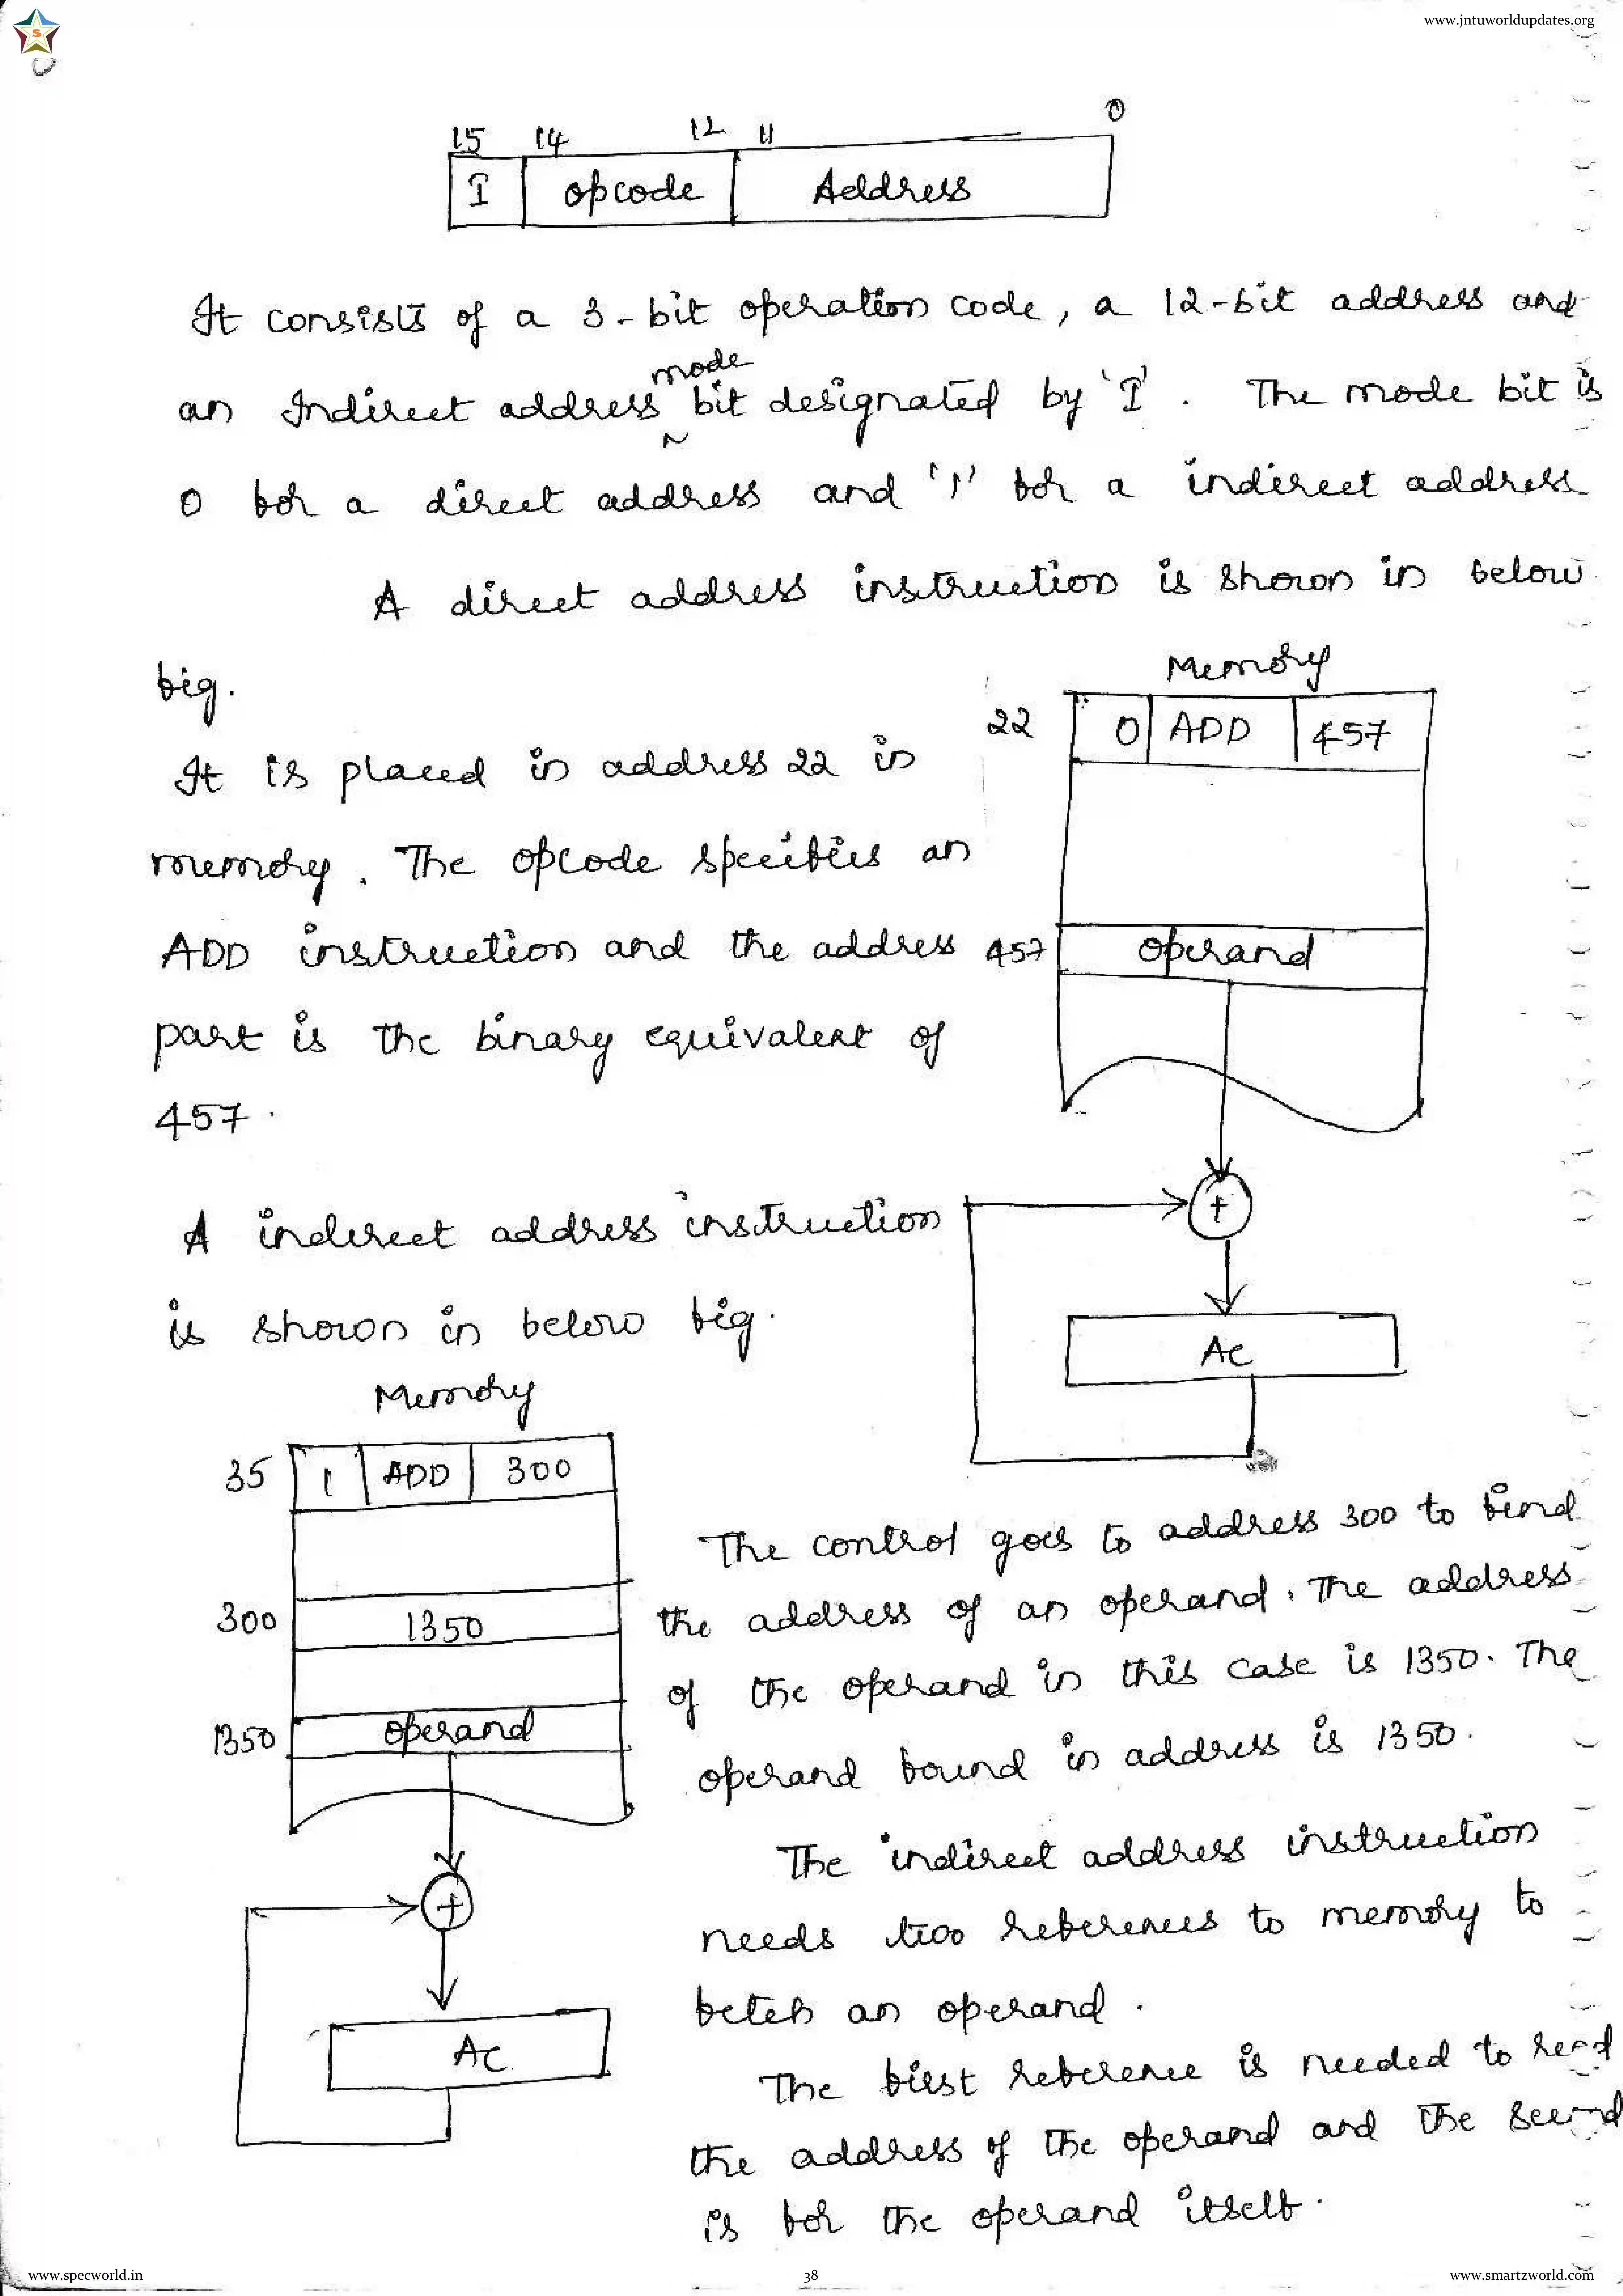 www.jntuworldupdates.org
S
15 14 12 11 0
I opcode Address
It consists of a 3-bit operation code, a 12-bit address and
mode
an Indirect address bit designated by 'I'. The mode bit is
0 for a direct address and '1' for a indirect address
A direct address instruction is shown in below
fig.
Memory
22 0 ADD 457
It is placed in address 22 in
memory. The opcode specifies an
ADD instruction and the address
457 operand
part is the binary equivalent of
457.
+
A indirect address instruction
is shown in below fig.
AC
Memory
35 1 ADD 300
300 1350
1350 operand
+
AC
The control goes to address 300 to find
the address of an operand. The address
of the operand in this case is 1350. The
operand found in address is 1350.
The indirect address instruction
needs two references to memory to
fetch an operand.
The first reference is needed to read
the address of the operand and the second
is for the operand itself.
www.specworld.in
38
www.smartzworld.com